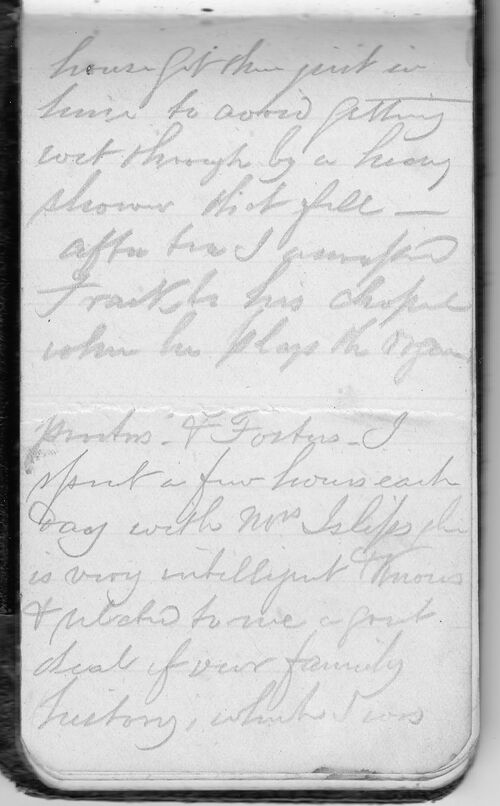 house got there just in
time to avoid getting
wet through by a heavy
shower that fell —
after tea I accompanied
Frank to his chapel
where he plays the organ
& Fosters - I
spent a few hours each
day with Mrs Islip, she
is very intelligent & knows
& related to me a great
deal of our family
history, which I was